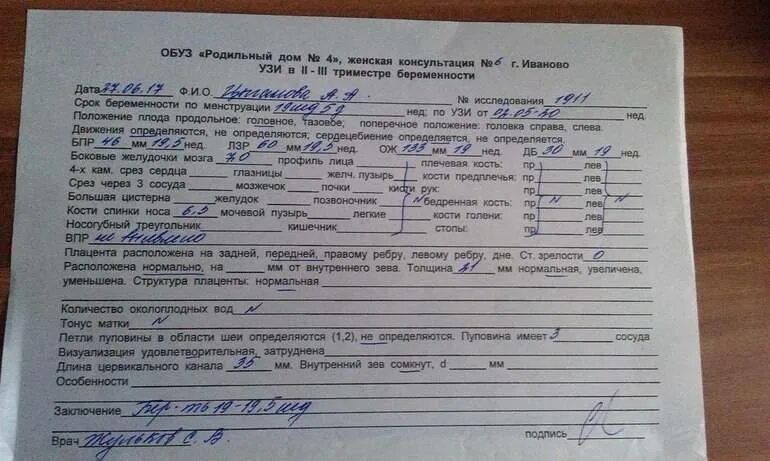 ОБУЗ «Родильный дом № 4», женская консультация № 6 г. Иваново
УЗИ в II - III триместре беременности
Дата 27.06.17 Ф.И.О. А. А. № исследования 1911
Срок беременности по менструации 19 нед 5 д нед; по УЗИ от 02.05-20 нед.
Положение плода продольное: головное, тазовое; поперечное положение: головка справа, слева.
Движения определяются, не определяются; сердецебиение определяется, не определяется.
БПР 46 мм 19,5 нед. ЛЗР 60 мм 19,5 нед. ОЖ 133 мм 19 нед. ДБ 30 мм 19 нед.
Боковые желудочки мозга 7,0 профиль лица плечевая кость: пр лев
4-х кам. срез сердца глазницы желч. пузырь кости предплечья: пр лев
Срез через 3 сосуда мозжечок почки кисти рук: пр лев
Большая цистерна желудок позвоночник N бедренная кость: пр N лев N
Кости спинки носа 6,5 мочевой пузырь легкие кости голени: пр лев
Носогубный треугольник кишечник стопы: пр лев
ВПР не выявлено
Плацента расположена на задней, передней, правому ребру, левому ребру, дне. Ст. зрелости 0
Расположена нормально, на мм от внутреннего зева. Толщина 21 мм нормальная, увеличена,
уменьшена. Структура плаценты: нормальная
Количество околоплодных вод N
Тонус матки N
Петли пуповины в области шеи определяются (1,2), не определяются. Пуповина имеет 3 сосуда
Визуализация удовлетворительная, затруднена
Длина цервикального канала 35 мм. Внутренний зев сомкнут, d мм
Особенности
Заключение Бер-ть 19-19,5 нед
Врач Жульков С. В. подпись